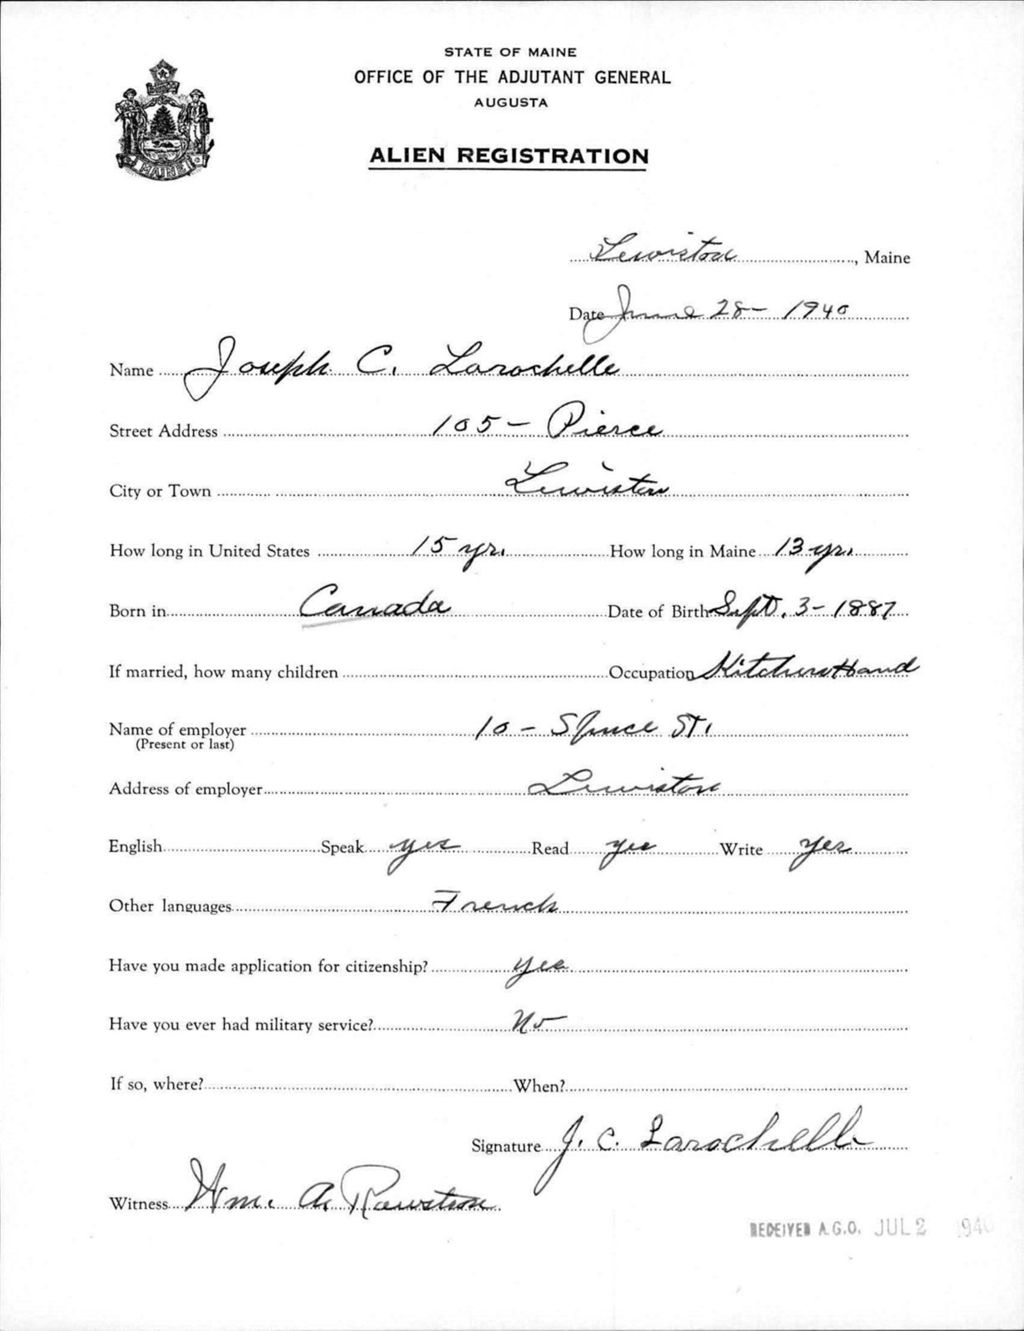 STATE OF MAINE
OFFICE OF THE ADJUTANT GENERAL
AUGUSTA
ALIEN REGISTRATION
MAINE
Lewiston, Maine
Date June 28 - 1940
Name Joseph C. Larochelle
Street Address 105 - Pierce
City or Town Lewiston
How long in United States 15 yrs. How long in Maine 13 yrs.
Born in Canada Date of Birth Sept. 3 - 1887
If married, how many children Occupation Kitchen Hand
Name of employer 10 - Spruce St.
(Present or last)
Address of employer Lewiston
English Speak yes Read yes Write yes
Other languages French
Have you made application for citizenship? yes
Have you ever had military service? No
If so, where? When?
Signature J. C. Larochelle
Witness Wm. A. Rawstron
RECEIVED A.G.O. JUL 2 1940